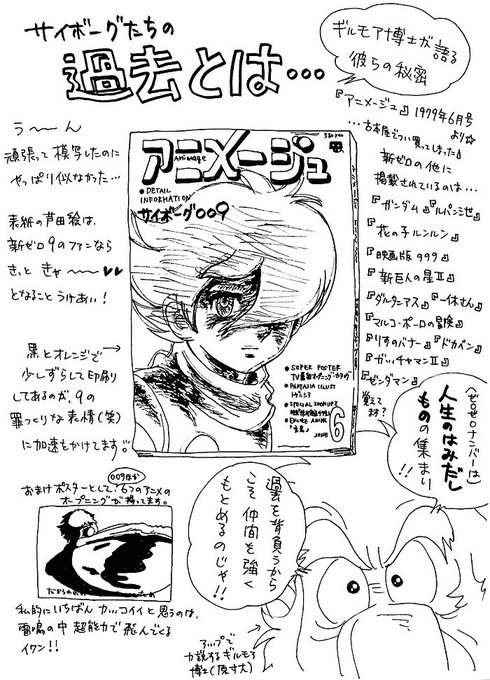 サイボーグたちの
過去とは…
ギルモア博士が語る
彼らの秘密
『アニメージュ』1979年6月号
より☆
…古本屋でつい買ってしまった。
新ゼロの他に
掲載されているのは…
『ガンダム』『ルパン三世』
『花の子ルンルン』
『映画版999』
『新巨人の星Ⅱ』
『ダルタニアス』『一休さん』
『マルコ・ポーロの冒険』
『りすのバナー』『ドカベン』
『ガッチャマンⅡ』
『ゼンダマン』
覚えて
ます?
う〜〜ん
頑張って模写したのに
やっぱり似なかった…
表紙の芦田絵は、
新ゼロ9のファンなら
きっと きゃ〜〜♥♥
となること うけあい!
黒とオレンジで→
少しずらして印刷
してあるのが、9の
罪つくりな表情(笑)
に加速をかけてます。
アニメージュ
Animage
●DETAIL
INFORMATION
サイボーグ009
●SUPER POSTER
●FANTASIA ILLUST
●SPECIAL ZOOM UP
6
(ゼロゼロナンバーは)
人生のはみだし
ものの集まり
!!
過去を背負うから
こそ 仲間を強く
もとめるのじゃ!!
009ほか
おまけポスターとして、6つのアニメの
オープニングが載ってます。
私的にいちばん カッコイイと思うのは、
雷鳴の中 超能力で飛んでくる
イワン!!
アップで
力説するギルモア
博士(原寸大)